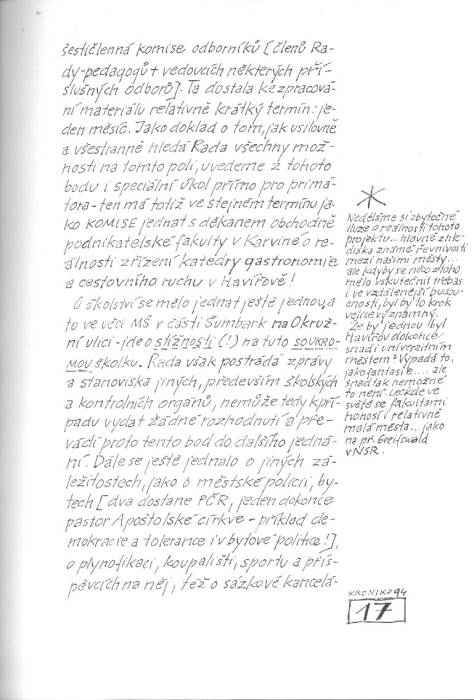 šestičlenná komise odborníků [členů Ra-
dy-pedagogů + vedoucích některých pří-
slušných odborů]. Ta dostala ke zpracová-
ní materiálu relativně krátký termín: je-
den měsíc. Jako doklad o tom, jak usilovně
a všestranně hledá Rada všechny mož-
nosti na tomto poli, uvedeme z tohoto
bodu i speciální úkol přímo pro primá-
tora - ten má totiž ve stejném termínu ja-
ko KOMISE jednat s děkanem obchodně
podnikatelské fakulty v Karviné o re-
álnosti zřízení katedry gastronomie
a cestovního ruchu v Havířově!
O školství se mělo jednat ještě jednou, a
to ve věci MŠ v části Šumbark na Okruž-
ní ulici - jde o stížnosti (!) na tuto soukro-
mou školku. Rada však postrádá zprávy
a stanoviska jiných, především školských
a kontrolních orgánů, nemůže tedy k pří-
padu vydat žádné rozhodnutí a pře-
vádí proto tento bod do dalšího jedná-
ní. Dále se ještě jednalo o jiných zá-
ležitostech, jako o městské policii, by-
tech [dva dostane PČR, jeden dokonce
pastor Apoštolské církve - příklad de-
mokracie a tolerance i v bytové politice!],
o plynofikaci, koupališti, sportu a přís-
pěvcích na něj, též o sázkové kancelá-
Neděláme si zbytečné
iluze o reálnosti tohoto
projektu... hlavně z hle-
diska známé řevnivosti
mezi našimi městy...
ale kdyby se něco z toho
mělo uskutečnit třebas
i ve vzdálenější budou-
cnosti, byl by to krok
velice významný.
Že by jednou byl
Havířov dokonce
snad i univerzitním
městem? Vypadá to,
jako fantasie.... ale
snad tak nemožné
to není. Leckde ve
světě se fakultami
honosí i relativně
malá města... jako
na př. Greifswald
v NSR.
KRONIKA 94
17